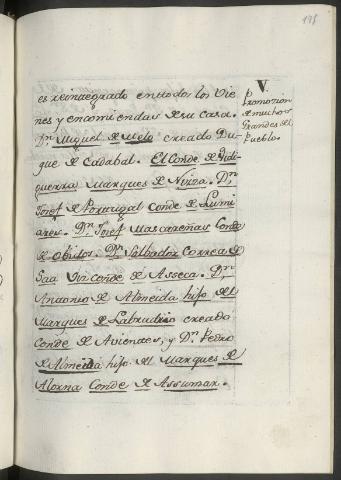 198
es reintegrado entodos los Vie
nes y encomiendas de su casa.
Dn. Miguel de Melo creado Du
que de Cadabal. El Conde de Vidi
guerra Marques de Nissa. Dn.
Josef de Portugal Conde de Lumi
ares. Dn. Josef Mascareñas Conde
de Obidos. Dn. Salbador Correa de
Saa Vizconde de Asseca. Dn.
Antonio de Almeida hijo del
Marques de Labradio creado
Conde de Avientes, y Dn. Pedro
de Almeida hijo del Marques de
Alorna Conde de Assumar.
V.
Promotion
de muchos
Grandes del
Pueblo.